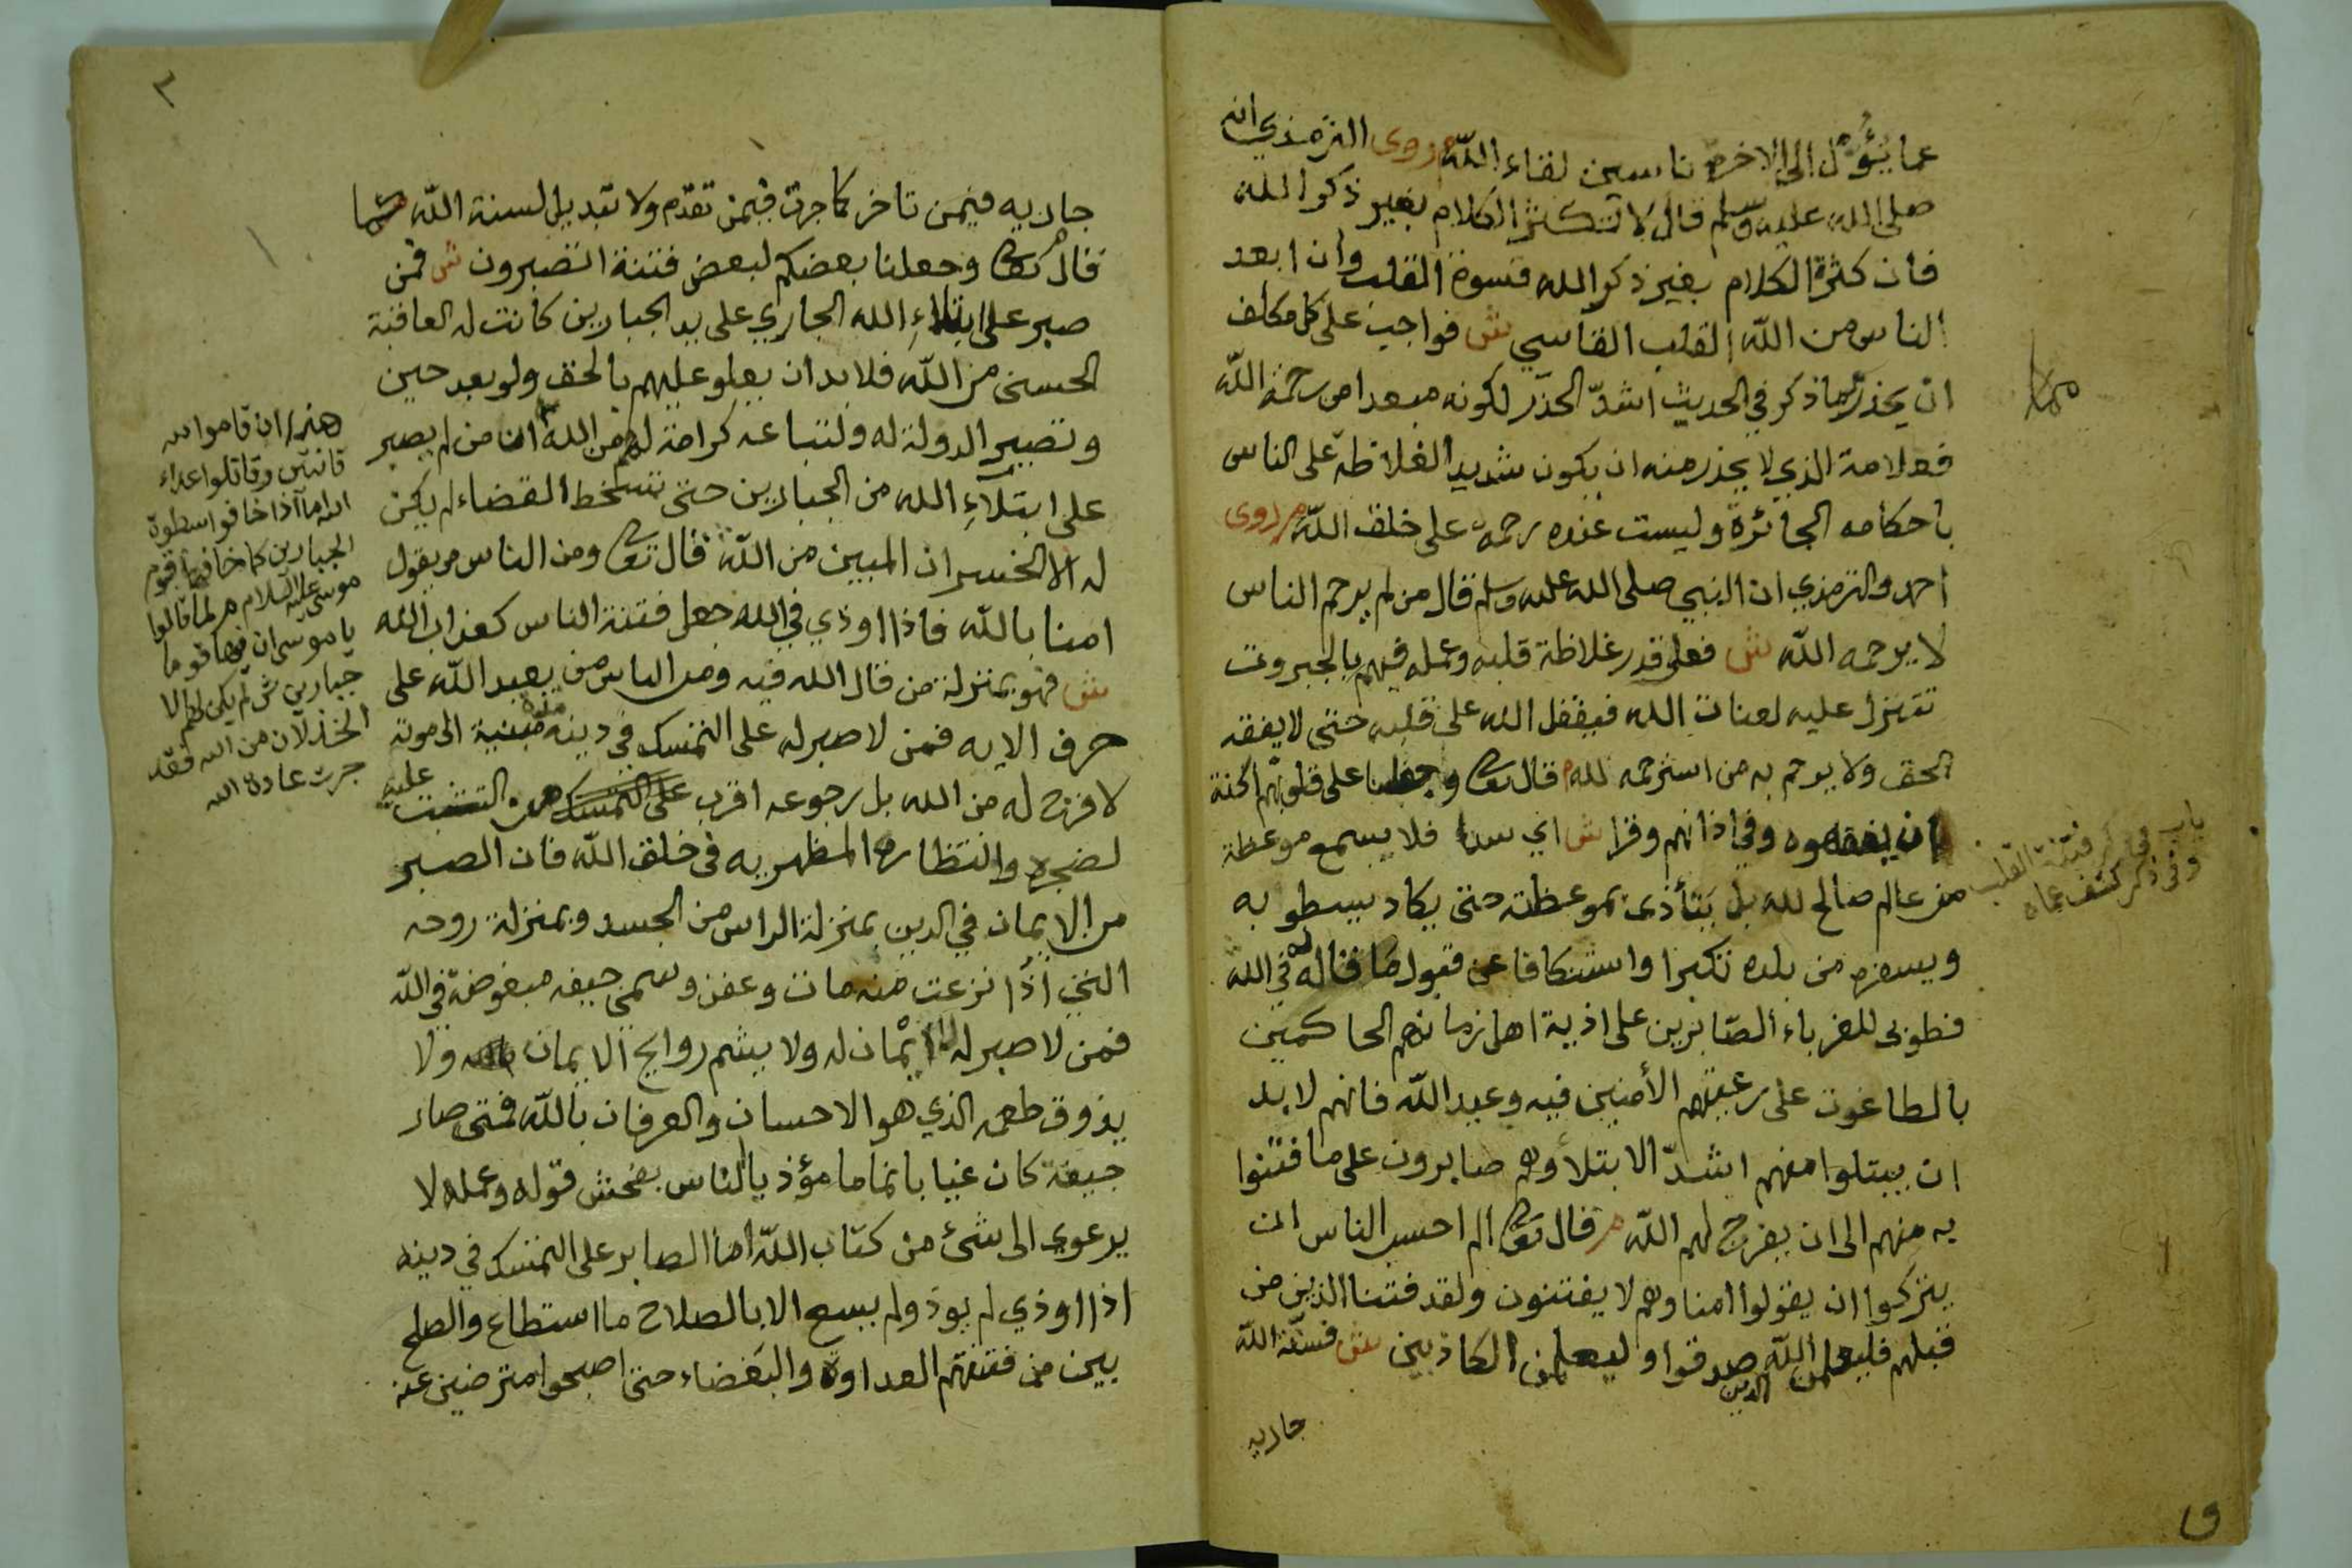 عما يؤل الى الاخرة ناسين لقاء الله م روى الترمذي انه
صلى الله عليه وسلم قال لا تكثر الكلام بغير ذكر الله
فان كثرة الكلام بغير ذكر الله قسوة القلب وان ابعد
الناس من الله القلب القاسي ش فواجب على كل مكلف
ان يحذر ما ذكر في الحديث اشد الحذر لكونه مبعدا من رحمة الله
فعلامة الذي لا يحذر منه ان يكون شديد الغلاظة على الناس
باحكامه الجائرة وليست عنده رحمة على خلق الله م روى
احمد والترمذي ان النبي صلى الله عليه وسلم قال من لم يرحم الناس
لا يرحمه الله ش فعلى قدر غلاظة قلبه وعمله فيهم بالجبروت
تتنزل عليه لعنات الله فيقفل الله على قلبه حتى لا يفقه
الحق ولا يرحم به من استرحمه لله م قال تعا وجعلنا على قلوبهم اكنة
ان يفقهوه وفي اذانهم وقرا ش اي سدا فلا يسمع موعظة
من عالم صالح لله بل يتأذى بموعظته حتى يكاد يسطو به
ويسفره من بلده تكبرا واستنكافا عن قبول ما قاله له في الله
فطوبى للغرباء الصابرين على اذية اهل زمانهم الحاكمين
بالطاغوت على رعيتهم الأمنين فيه وعبد الله فانهم لا بد
ان يبتلوا منهم اشد الابتلأ وهم صابرون على ما فتنوا
به منهم الى ان يفرج لهم الله م قال تعا الم احسب الناس ان
يتركوا ان يقولوا امنا وهم لا يفتنون ولقد فتنا الذين من
قبلهم فليعلمن الله الذين صدقوا وليعلمن الكاذبين ش فسنة الله
جاريه
باب في ذكر فتنة القلب
وفي ذكر كشف عماه
٣
جاريه فيمن تاخر كما جرت فيمن تقدم ولا تبديل لسنة الله
قال تعا وجعلنا بعضكم لبعض فتنة اتصبرون ش فمن
صبر على ابتلاء الله الجاري على يد الجبارين كانت له العاقبة
الحسنى من الله فلا بد ان يعلو عليهم بالحق ولو بعد حين
وتصيير الدولة له ولتباعه كرامة لهم من الله اما من لم يصبر
على ابتلآء الله من الجبارين حتى تسخط القضاء لم يكن
له الا الخسران المبين من الله قال تعا ومن الناس من يقول
امنا بالله فاذا اوذي في الله جعل فتنة الناس كعذاب الله
ش فهو بمنزلة من قال الله فيه ومن الناس من يعبد الله على
حرف الايه فمن لا صبر له على التمسك في دينه الى موته
لا فرج له من الله بل رجوعه اقرب على التمسك التثبت عليه
لضجره وانتظاره المظهر به في خلق الله فان الصبر
من الايمان في الدين بمنزلة الراس من الجسد وبمنزلة روحه
التي اذا نزعت منه مات وعفن وسمى جيفه مبغوضة في الله
فمن لا صبر له لا ايمان له ولا يشم روايح الايمان ولا
يذوق طعمه الذي هو الاحسان والعرفان بالله فمتى صار
جيفة كان غيابا نماما مؤذيا لناس بفحش قوله وعمله لا
يرعوي الى شئ من كتاب الله اما الصابر على التمسك في دينه
اذا اوذي لم يوذ ولم يسع الا بالصلاح ما استطاع والصلح
بين من فتنتهم العداوة والبغضاء حتى اصبحوا مترضين عنه
هذا ان قاموا لله
قانتين وقاتلوا اعداء
الله اما اذا خافوا سطوة
الجبارين كما خافها قوم
موسى عليه السلام م لما قالوا
يا موسى ان فيها قوما
جبارين ش لم يكن لهم الا
الخذلان من الله فقد
جرت عادة الله